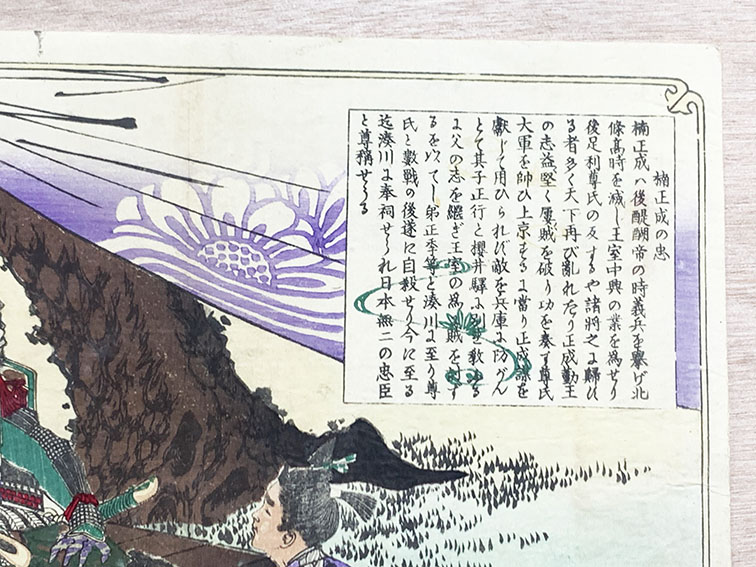 楠正成の忠
楠正成ハ後醍醐帝の時義兵を擧げ北
條高時を滅し王室中興の業を為せり
後足利尊氏の反するや諸將之に歸ひ
る者多く天下再び亂れたり正成勤王
の志益堅く屢賊を破り功を奏す尊氏
大軍を帥ひ上京するに當り正成謀を
獻じて用ひられず敵を兵庫に防がん
とて其子正行と櫻井驛に別を教ゆる
に父の志を継ぎ王室の為賊を討す
るを以てし弟正季等と湊川に至り尊
氏と數戦の後遂に自殺せり今に至る
迄湊川に奉祠せられ日本無二の忠臣
と尊稱せらる